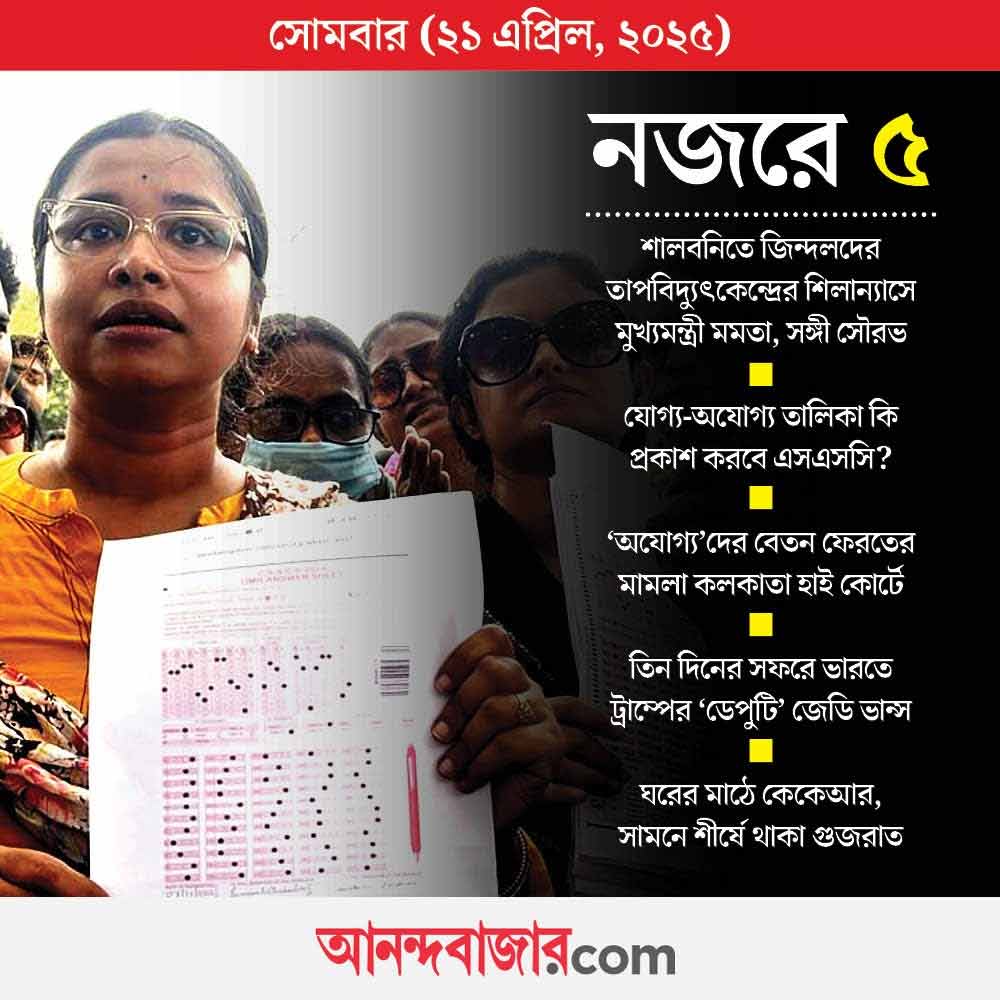 সোমবার (২১ এপ্রিল, ২০২৫)
নজরে ৫
শালবনিতে জিন্দলদের
তাপবিদ্যুৎকেন্দ্রের শিলান্যাসে
মুখ্যমন্ত্রী মমতা, সঙ্গী সৌরভ
যোগ্য-অযোগ্য তালিকা কি
প্রকাশ করবে এসএসসি?
‘অযোগ্য’দের বেতন ফেরতের
মামলা কলকাতা হাই কোর্টে
তিন দিনের সফরে ভারতে
ট্রাম্পের ‘ডেপুটি’ জেডি ভান্স
ঘরের মাঠে কেকেআর,
সামনে শীর্ষে থাকা গুজরাত
OMR ANSWER SHEET
আনন্দবাজার.com